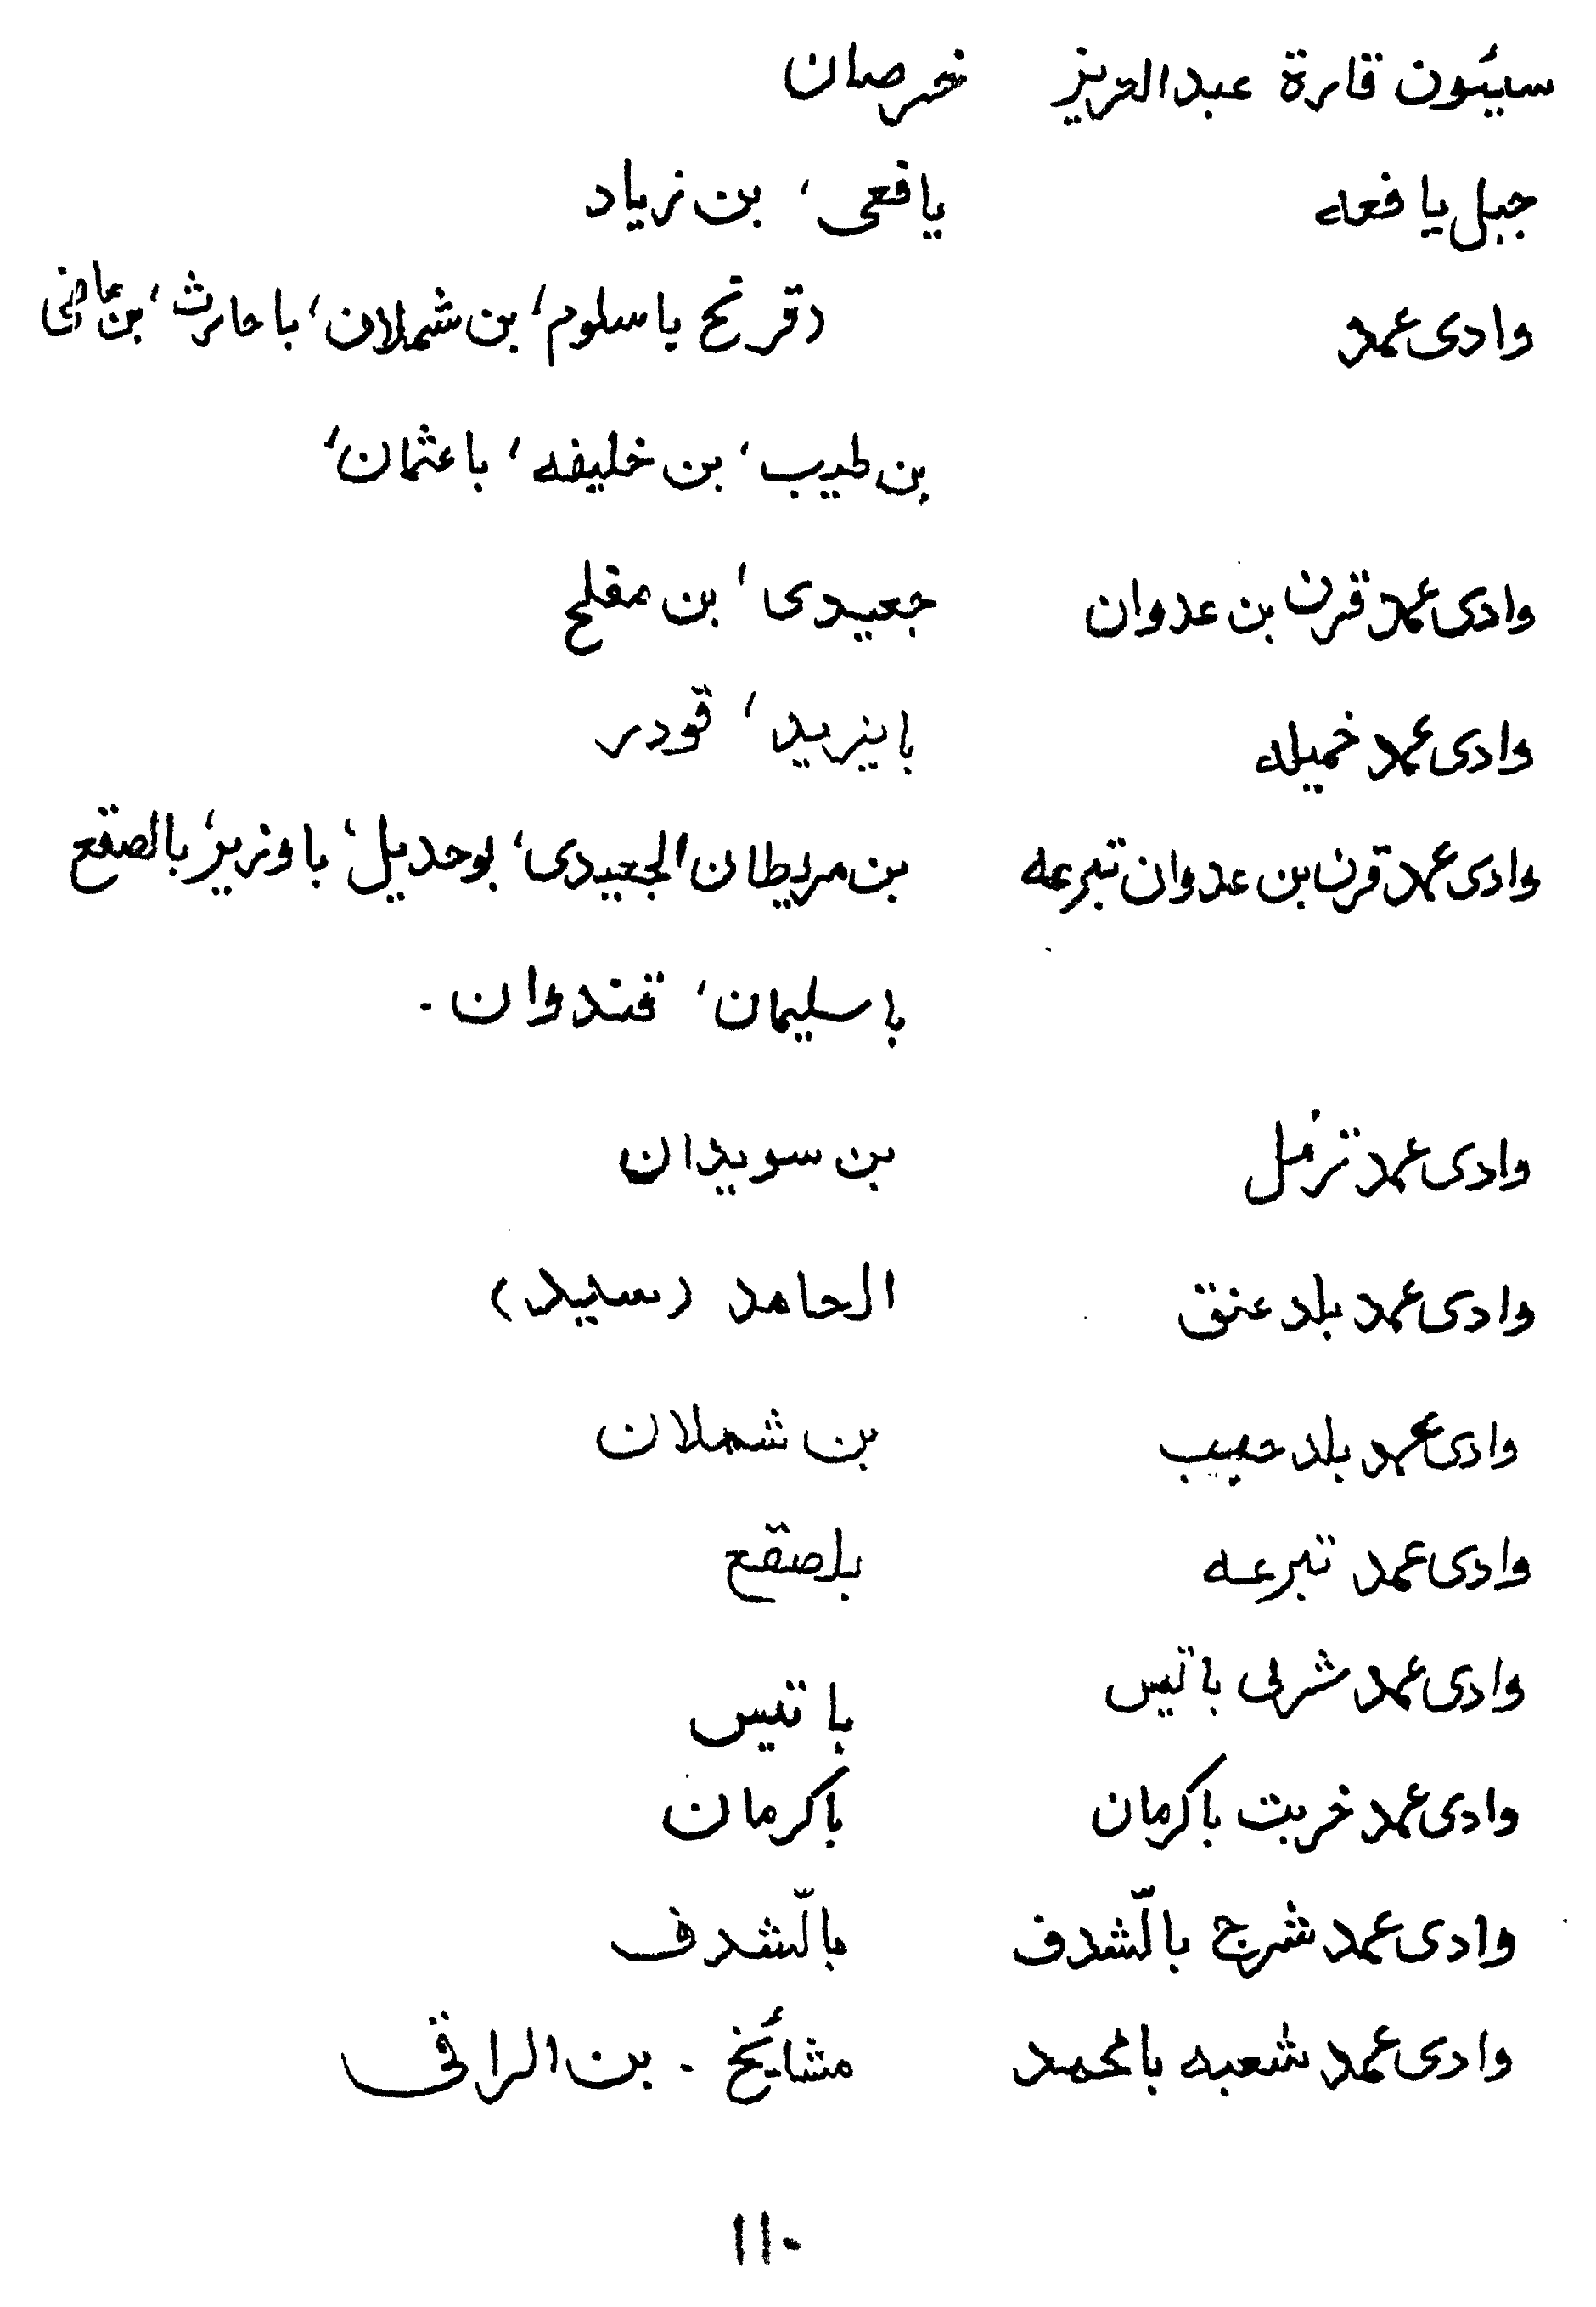 سيئون قارة عبدالعزيز خرصان
جبل يافعه يافعى، بن زياد
وادى عمد (قرتح باسلوم، بن شملان، باحارث، بن ماضى
بن طيب، بن خليفه، باعثمان،
وادى عمد قرن بن عدوان جعيدى، بن مفلح
وادى عمد خميله بايزيد، قودر
وادى عمد قرن بن عدوان تبرعه بن مريطان الجعيدى، بوحديل، باوزير، بالصقع
باسليمان، قندوان.
وادى عمد نزمل بن سويدان
وادى عمد بلد عنق الحامد (سيد)
وادى عمد بلد حبيب بن شملان
وادى عمد تبرعه بلصقع
وادى عمد شربى باتيس باتيس
وادى عمد خربت باكرمان باكرمان
وادى عمد شرج بالّشدف بالّشدف
وادى عمد شعبه بامحمد مشائخ . بن الراقى
١١٠